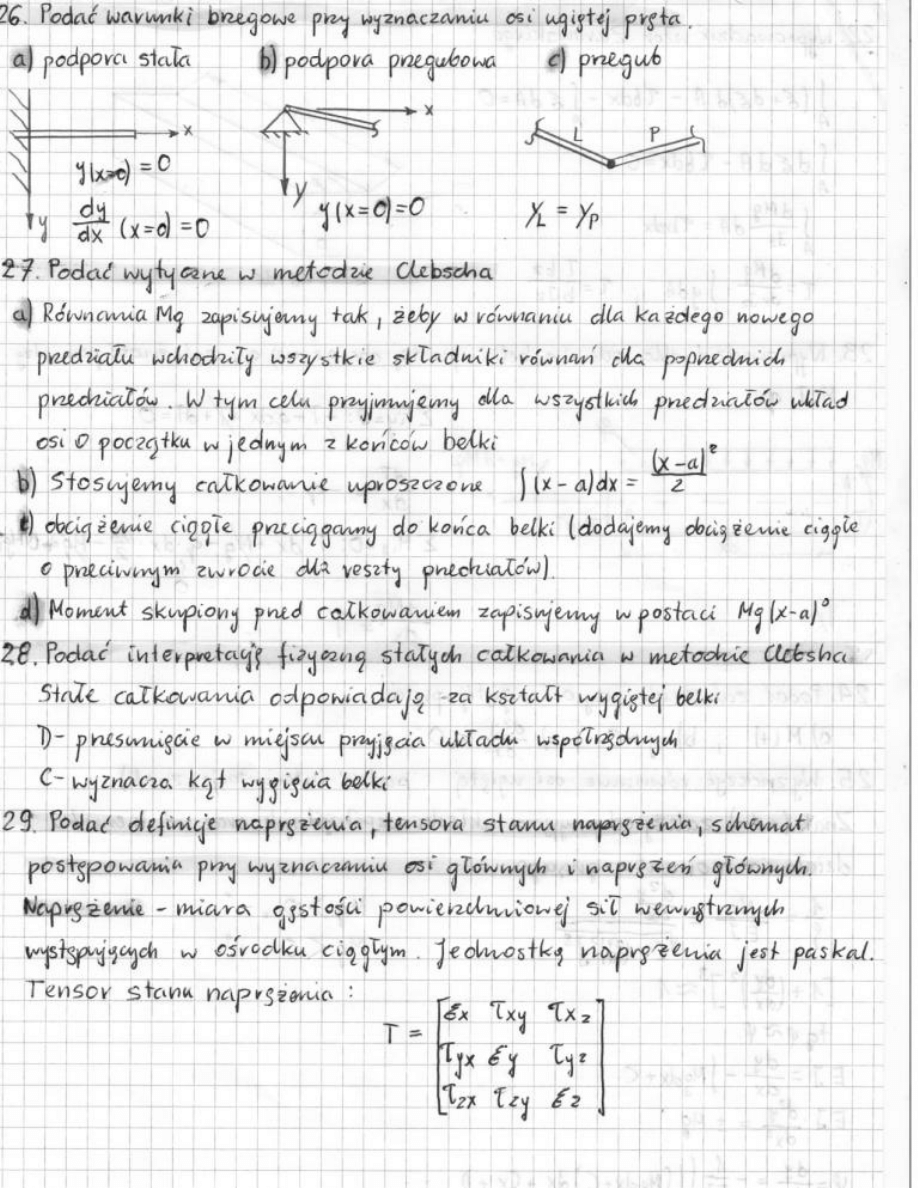 26. Podać warunki brzegowe przy wyznaczaniu osi ugiętej pręta.
a) podpora stała b) podpora przegubowa c) przegub
x
x
L P
y(x=0) = 0
y
y(x=0)=0
y_L = y_P
y
dy/dx (x=0) = 0
27. Podać wytyczne w metodzie Clebscha
a) Równania Mg zapisujemy tak, żeby w równaniu dla każdego nowego
przedziału wchodziły wszystkie składniki równań dla poprzednich
przedziałów. W tym celu przyjmujemy dla wszystkich przedziałów układ
osi o początku w jednym z końców belki
b) Stosujemy całkowanie uproszczone ∫(x-a)dx = (x-a)²/2
c) obciążenie ciągłe przeciągamy do końca belki (dodajemy obciążenie ciągłe
o przeciwnym zwrocie dla reszty przedziałów).
d) Moment skupiony przed całkowaniem zapisujemy w postaci Mg(x-a)⁰
28. Podać interpretację fizyczną stałych całkowania w metodzie Clebsha.
Stałe całkowania odpowiadają za kształt wygiętej belki
D- przesunięcie w miejscu przyjęcia układu współrzędnych
C- wyznacza kąt wygięcia belki
29. Podać definicje naprężenia, tensora stanu naprężenia, schemat
postępowania przy wyznaczaniu osi głównych i naprężeń głównych.
Naprężenie - miara gęstości powierzchniowej sił wewnętrznych
występujących w ośrodku ciągłym. Jednostką naprężenia jest paskal.
Tensor stanu naprężenia :
T = [ Ɛx τxy τxz
τyx Ɛy τyz
τzx τzy Ɛz ]